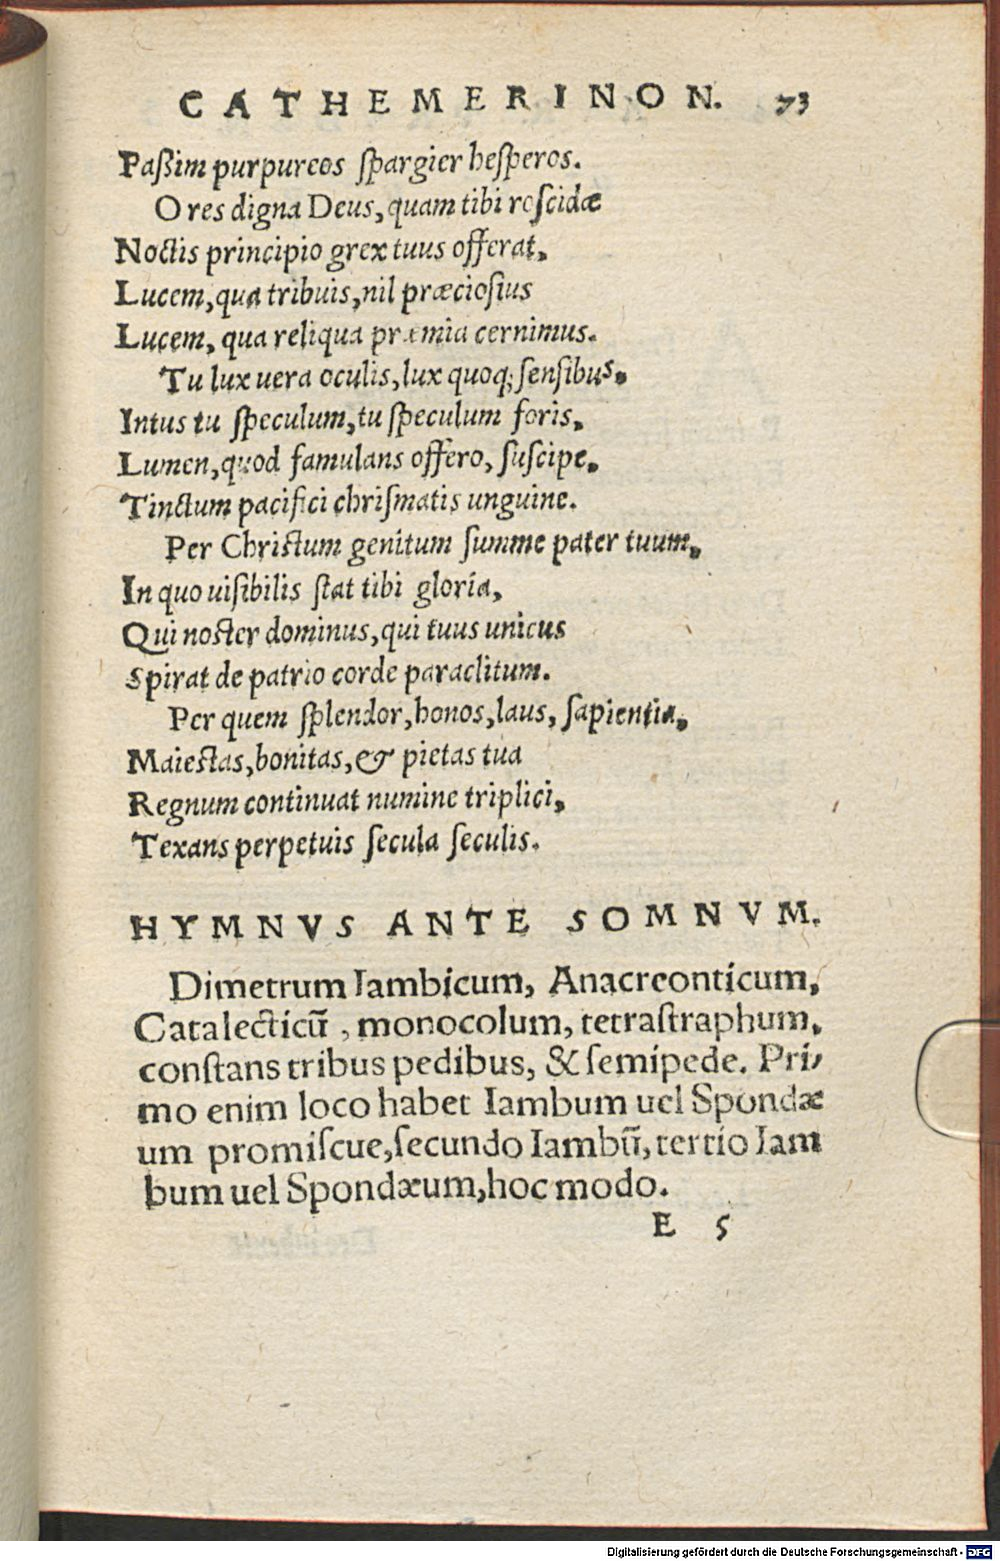 CATHEMERINON. 73
Paßim purpureos ſpargier heſperos.
O res digna Deus, quam tibi roſcidæ
Noctis principio grex tuus offerat,
Lucem, qua tribuis, nil præcioſius
Lucem, qua reliqua præmia cernimus.
Tu lux uera oculis, lux quoq; ſenſibus,
Intus tu ſpeculum, tu ſpeculum foris,
Lumen, quod famulans offero, ſuſcipe,
Tinctum pacifici chriſmatis unguine.
Per Chriſtum genitum ſumme pater tuum,
In quo uiſibilis ſtat tibi gloria,
Qui noſter dominus, qui tuus unicus
Spirat de patrio corde paraclitum.
Per quem ſplendor, honos, laus, ſapientia,
Maieſtas, bonitas, & pietas tua
Regnum continuat numine triplici,
Texans perpetuis ſecula ſeculis.
HYMNVS ANTE SOMNVM.
Dimetrum Iambicum, Anacreonticum,
Catalecticū, monocolum, tetraſtraphum,
conſtans tribus pedibus, & ſemipede. Pri-
mo enim loco habet Iambum uel Spondæ
um promiſcue, ſecundo Iambū, tertio Iam
bum uel Spondæum, hoc modo.
E 5
Digitalisierung gefördert durch die Deutsche Forschungsgemeinschaft - DFG